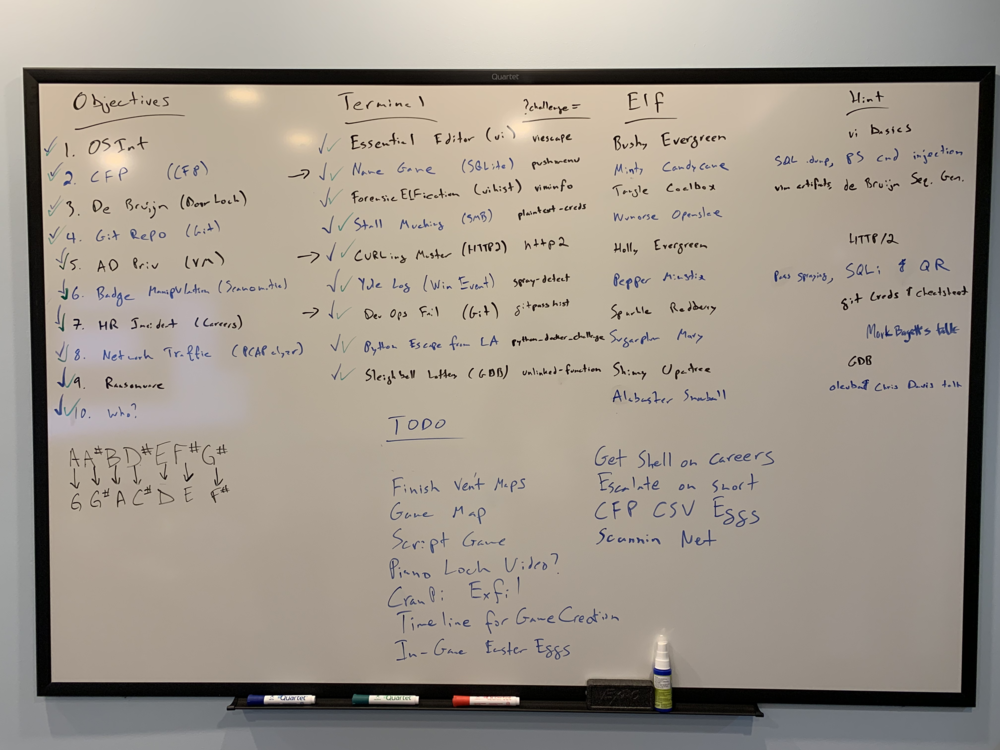 Quartet
Objectives
1. OSInt
2. CFP (CFP)
3. De Bruijn (Door Lock)
4. Git Repo (Git)
5. AD Priv (VM)
6. Badge Manipulation (Scanomatic)
7. HR Incident (Careers)
8. Network Traffic (PCAPalyzer)
9. Ransomware
10. Who?
A A# B D# E F# G#
G G# A C# D E F#
Terminal ?challenge=
Essential Editor (vi) viescape
→ Name Game (SQLite) pushmenu
Forensic ELFication (vihist) viminfo
Stall Mucking (SMB) plaintext-creds
→ CURLing Master (HTTP2) http2
Yule Log (Win Event) spray-detect
→ Dev Ops Fail (Git) gitpasshist
Python Escape from LA python_docker_challenge
Sleighbell Lotters (GDB) unlinked-function
Elf
Bushy Evergreen
Minty Candycane
Tangle Coalbox
Wunorse Openslae
Holly Evergreen
Pepper Minstix
Sparkle Redberry
Sugarplum Mary
Shinny Upatree
Alabaster Snowball
Hint
vi basics
SQL dump, PS cmd injection
vim artifats, de Bruijn Seq. Gen.
HTTP/2
Pass spraying, SQLi & QR
git creds & cheatsheet
Mark Baggett's talk
GDB
Chris Davis talk
TODO
Finish Vent Maps
Game Map
Script Game
Piano Lock Video?
CranPi Exfil
Timeline for Game Creation
In-Game Easter Eggs
Get Shell on careers
Escalate on short
CFP CSV Eggs
Scannin Net
Quartet
Quartet